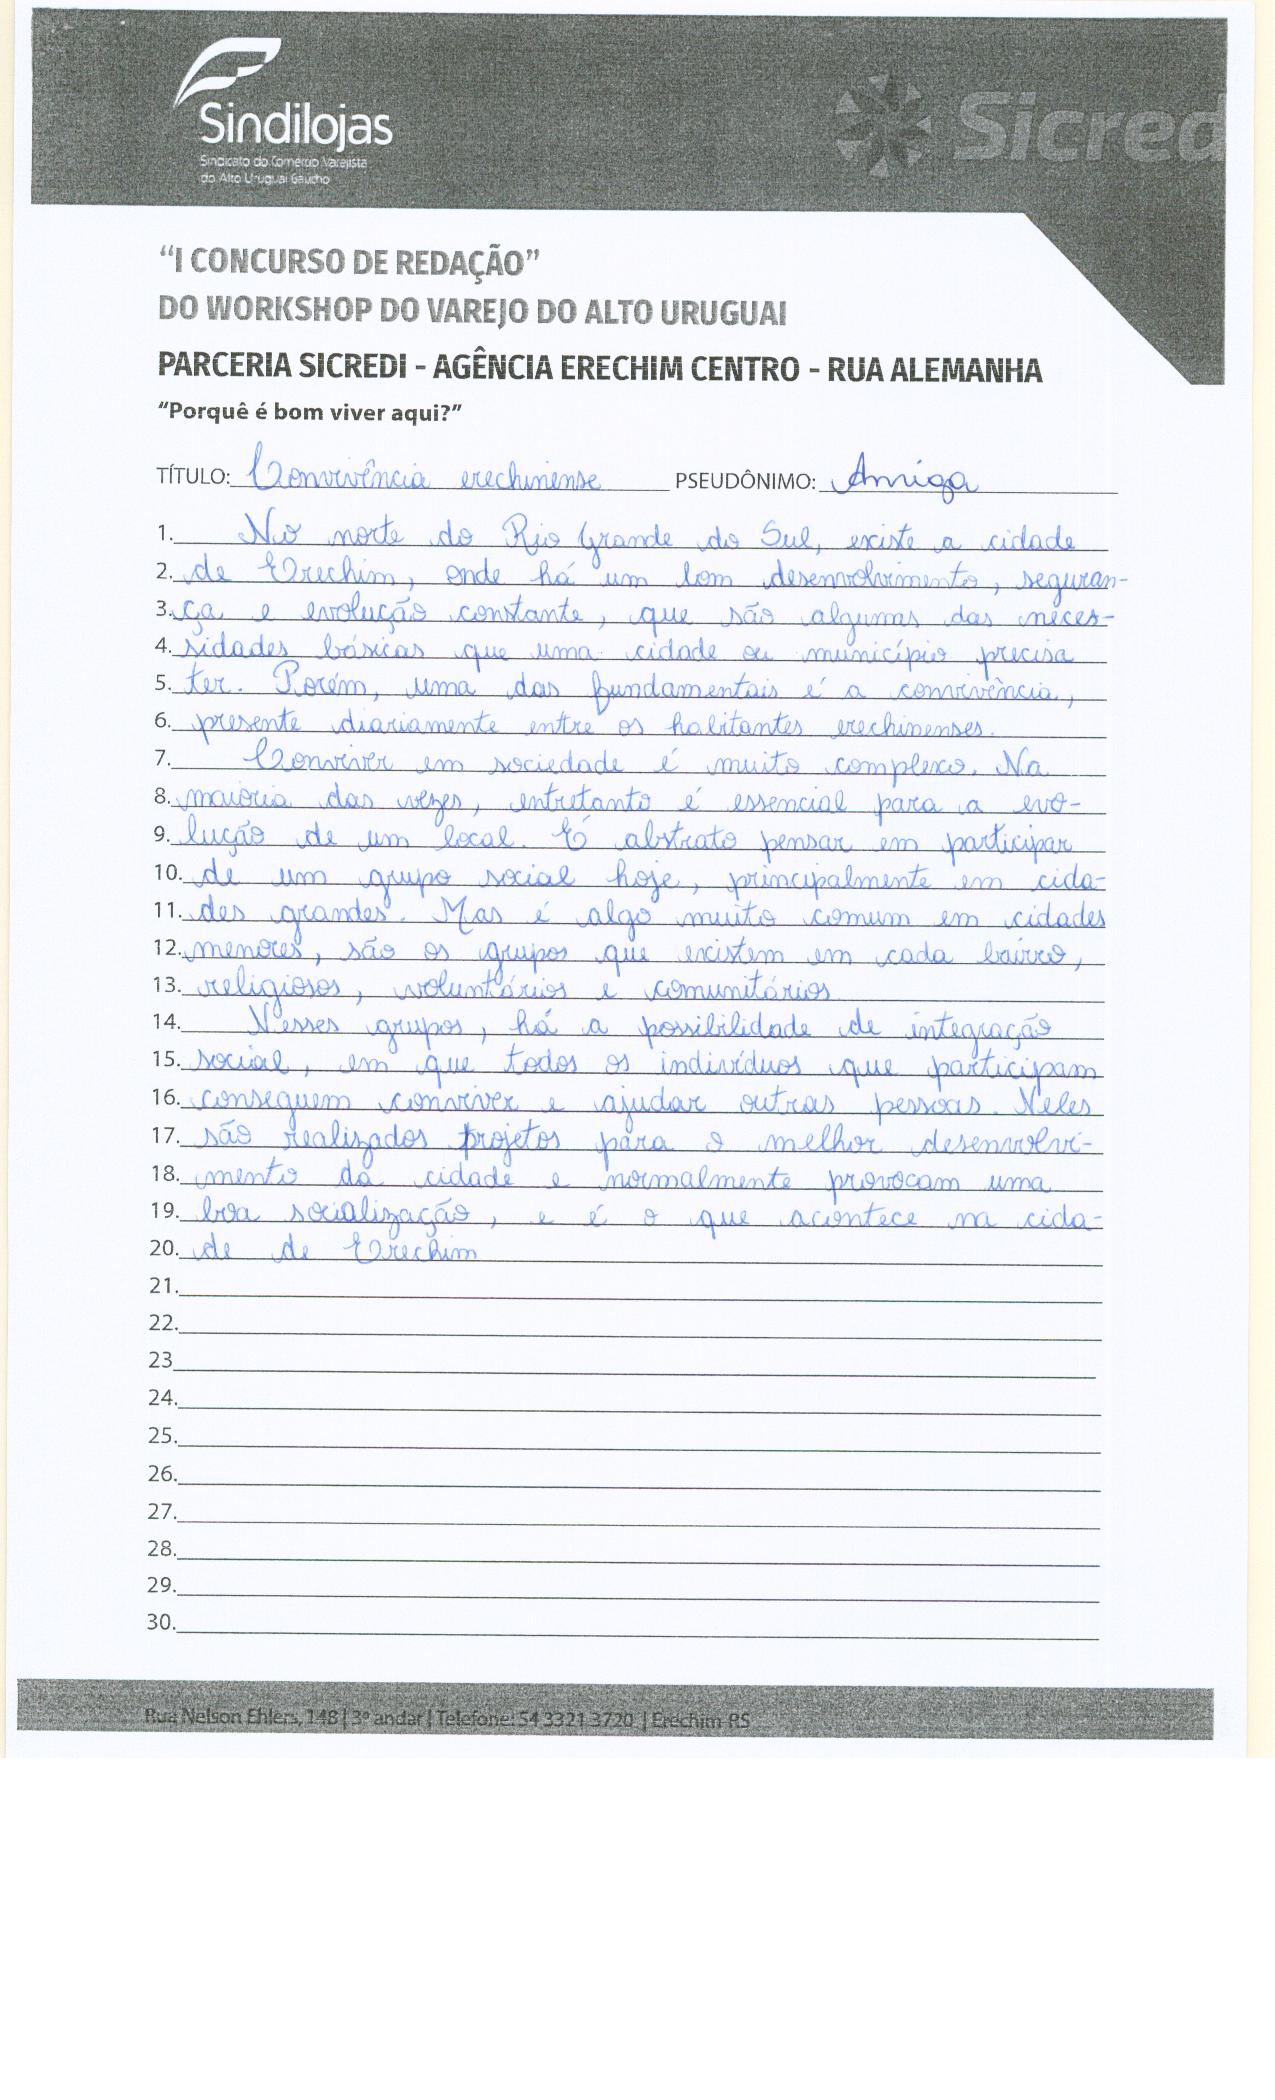 Sindilojas
Sindicato do Comércio Varejista
do Alto Uruguai Gaúcho
Sicred
“I CONCURSO DE REDAÇÃO”
DO WORKSHOP DO VAREJO DO ALTO URUGUAI
PARCERIA SICREDI - AGÊNCIA ERECHIM CENTRO - RUA ALEMANHA
“Porquê é bom viver aqui?”
TÍTULO: Convivência erechinense PSEUDÔNIMO: Amiga
1. No norte do Rio Grande do Sul, existe a cidade
2. de Erechim, onde há um bom desenvolvimento, seguran-
3. ça e evolução constante, que são algumas das neces-
4. sidades básicas que uma cidade ou município precisa
5. ter. Porém, uma das fundamentais é a convivência,
6. presente diariamente entre os habitantes erechinenses.
7. Conviver em sociedade é muito complexo. Na
8. maioria das vezes, entretanto é essencial para a evo-
9. lução de um local. É abstrato pensar em participar
10. de um grupo social hoje, principalmente em cida-
11. des grandes. Mas é algo muito comum em cidades
12. menores, são os grupos que existem em cada bairro,
13. religiosos, voluntários e comunitários
14. Nesses grupos, há a possibilidade de integração
15. social, em que todos os indivíduos que participam
16. conseguem conviver e ajudar outras pessoas. Neles
17. são realizados projetos para o melhor desenvolvi-
18. mento da cidade e normalmente provocam uma
19. boa socialização, e é o que acontece na cida-
20. de de Erechim
21.
22.
23
24.
25.
26.
27.
28.
29.
30.
Rua Nelson Ehlers, 148 | 3º andar | Telefone: 54 3321 3720 | Erechim-RS